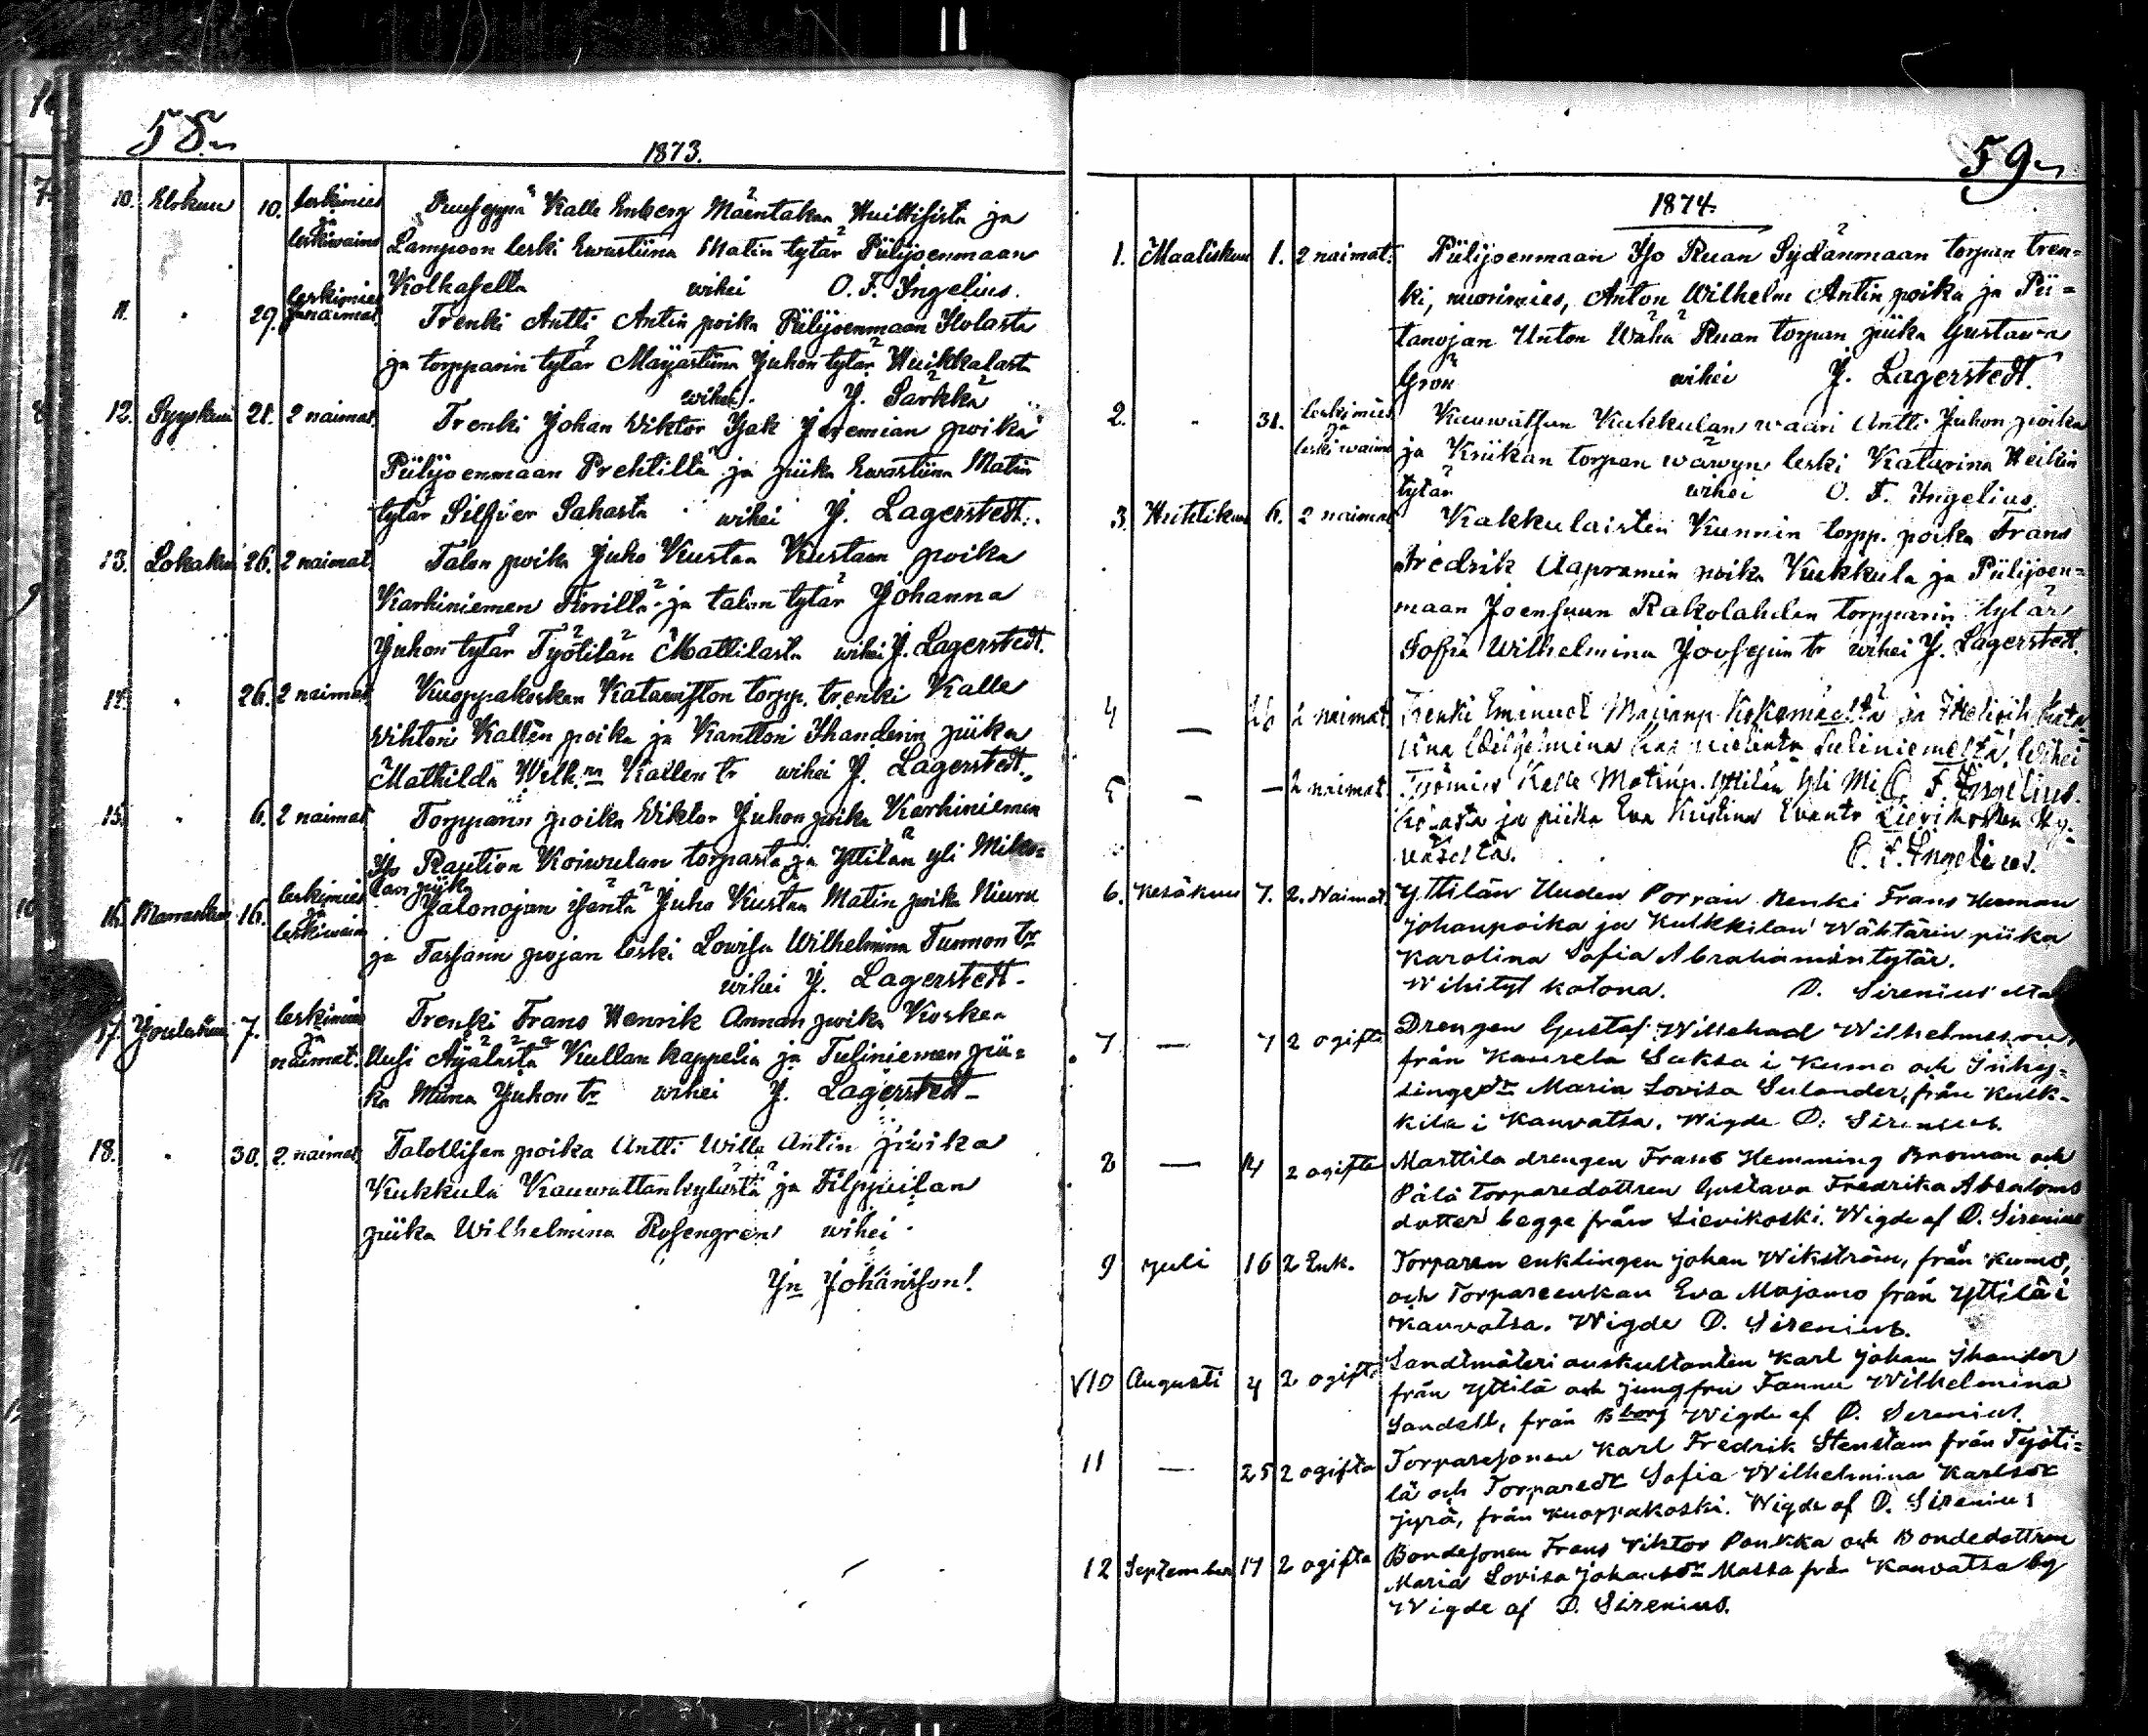 58.
1873.
10. Elokuu 10. leskimies ja leskiwaimo Puuseppä Kalle Enberg Mäentakaa Huittisista ja
Lampoon leski Ewastiina Matin tytär Piilijoenmaan
Kolkasella wihei O. F. Ingelius.
11. " 29. leskimies ja naimat. Trenki Antti Antin poika Piilijoenmaan Ilolasta
ja torpparin tytär Majastiina Juhon tytär Huikkalasta
wihei. J. Särkkä
12. Syyskuu 21. 2 naimat. Trenki Johan Viktor Isak Jeremian poika
Piilijoenmaan Prehtiltä ja piika Ewastiina Matin
tytär Silfver Sahasta wihei J. Lagerstedt.
13. Lokakuu 26. 2 naimat. Talon poika Juho Kustaa Kustaan poika
Karhiniemen ja talon tytär Johanna
Juhon tytär Työtilän Mattilasta wihei J. Lagerstedt.
14. " 26. 2 naimat. Kuoppakosken torpp. trenki Kalle
Wihtori Kallen poika ja Kanttori Ihanderin piika
Mathilda Wilh.na Kallen tr wihei J. Lagerstedt.
15. " 6. 2 naimat. Torpparin poika Viktor Juhon poika Karhiniemen
Iso Raution Koiwulan torpasta ja Yttilän yli Miko=
lan piika
16. Marraskuu 16. leskimies ja leskiwaim Jalonojan isäntä Juho Kustaa Matin poika Niuru
ja Tassarin pojan leski Lowisa Wilhelmina Tuomon tr
wihei J. Lagerstedt.
17. Joulukuu 7. leskimies ja naimat. Trenki Frans Henrik Annan poika Kosken
Uusi Äijälästä Kullan kappelia ja Tuliniemen pii=
ka Miina Juhon tr wihei J. Lagerstedt
18. " 30. 2 naimat. Talollisen poika Antti Wille Antin poika
Kukkula Kauwattankylästä ja Filppuilan
piika Wilhelmina Rosengren wihei
Jn Johansson!
59.
1874.
1. Maaliskuu 1. 2 naimat. Piilijoenmaan Iso Ruan Sydänmaan torpan tren=
ki, nuorimies, Anton Wilhelm Antin poika ja Pii=
tanojan Unton Wähä Ruan torpan piika Gustawa
Grön wihei J. Lagerstedt.
2. " 31. leskimies ja leskiwaimo Kauwatsan Kukkulan waari Antti Juhon poika
ja Kriikan torpan wäwyn leski Katarina Heikin
tytär wihei O. F. Ingelius.
3. Huhtikuu 6. 2 naimat. Kakkulaisten Kunnin torpp. poika Frans
Fredrik Aapramin poika Kukkula ja Piilijoen=
maan Joensuun Rakolahden torpparin tytär
Sofia Wilhelmina Joosepin tr wihei J. Lagerstedt.
4 — 26 2 naimat. Trenki Emanuel Majanp. Kokemäeltä ja
Wilhelmina Tuliniemeltä. Wihei
O. F. Ingelius.
5 — — 2 naimat. Työmies Kalle Matinp. Yttilän Yli Mi
kolasta ja piika Eva Kristina Sievikosken
O. F. Ingelius.
6. Kesäkuu 7. 2. Naimat. Yttilän Uuden Porran Renki Frans Herman
Johanpoika ja Kulkkilan Wähtärin piika
Karolina Sofia Abrahamintytär.
Wihityt kotona. D. Sirenius
7 — 7 2 ogifta Drengen Gustaf Willehad Wilhelmsson,
från Kaurela Saksa i Kumo och Inhy=
singedr Maria Lovisa Sulander, från Kulk-
kila i Kauvatsa. Wigde D. Sirenius.
8 — 14 2 ogifta Marttila drengen Frans Hemming Broman och
Pälä Torparedottren Gustava Fredrika Absaloms
dotter begge från Sievikoski. Wigde af D. Sirenius
9 Juli 16 2 Enk. Torparen enklingen Johan Wikström, från Kumo,
och Torpareenkan Eva Majamo från Yttilä i
Kauvatsa. Wigde D. Sirenius.
V10 Augusti 4 2 ogifta Landtmäteri auskultanten Karl Johan Ihander
från Yttilä och jungfru Fannu Wilhelmina
Sandell, från Bborg Wigde af D. Sirenius.
11 — 25 2 ogifta Torparesonen Karl Fredrik Stenstam från Työti=
lä och Torparedr Sofia Wilhelmina Karlsdr
Jyrä, från Kuoppakoski. Wigde af D. Sirenius
12 September 17 2 ogifta Bondesonen Frans Viktor Paukka och Bondedottren
Maria Lovisa Johansdr Massa från Kauvatsa by
Wigde af D. Sirenius.